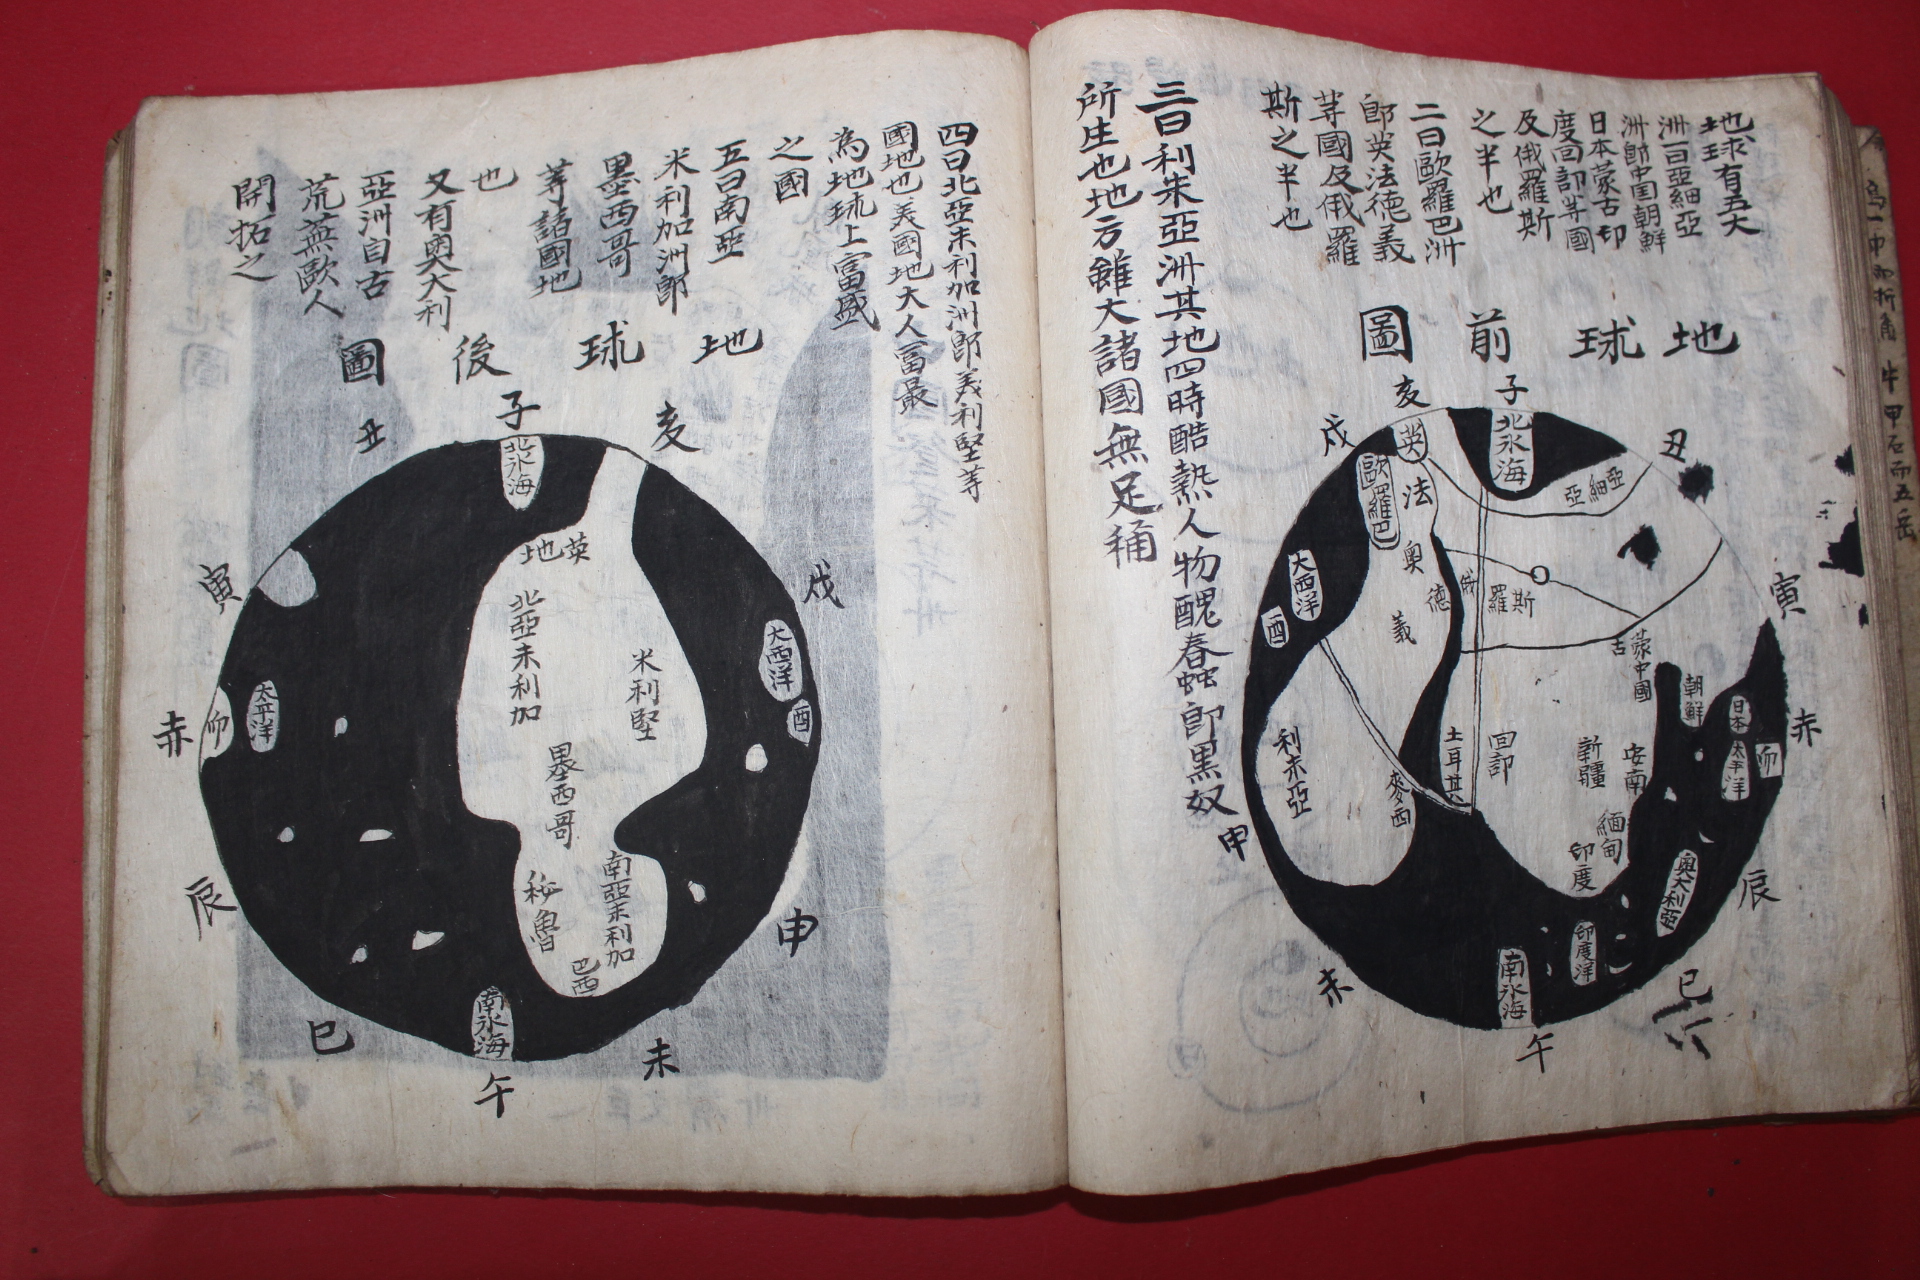 地球有五大
洲一曰亞細亞
洲卽中国朝鮮
日本蒙古印
度回部等國
及俄羅斯
之半也
二曰歐羅巴洲
卽英法德義
等國及俄羅
斯之半也
三曰利未亞洲其地四時酷熱人物醜春蟲卽黑奴
所生也地方雖大諸國無足稱
地球前圖
子
丑
寅
赤
卯
辰
巳
午
未
申
酉
戌
亥
北氷海
亞細亞
英
法
歐羅巴
奧
德
義
俄羅斯
大西洋
蒙古
中國
朝鮮
日本
太平洋
利未亞
麥西
土耳其
回部
新疆
安南
緬甸
印度
奧大利亞
印度洋
南氷海
四曰北亞未利加洲卽美利堅等
國地也美國地大人富最
為地球上富盛
之國
五曰南亞
米利加洲卽
墨西哥
等諸國地
也
又有奧大利
亞洲自古
荒蕪歐人
開拓之
地球後圖
子
丑
寅
赤
卯
辰
巳
午
未
申
酉
戌
亥
北氷海
英地
北亞未利加
米利堅
大西洋
太平洋
墨西哥
南亞未利加
秘魯
巴西
南氷海